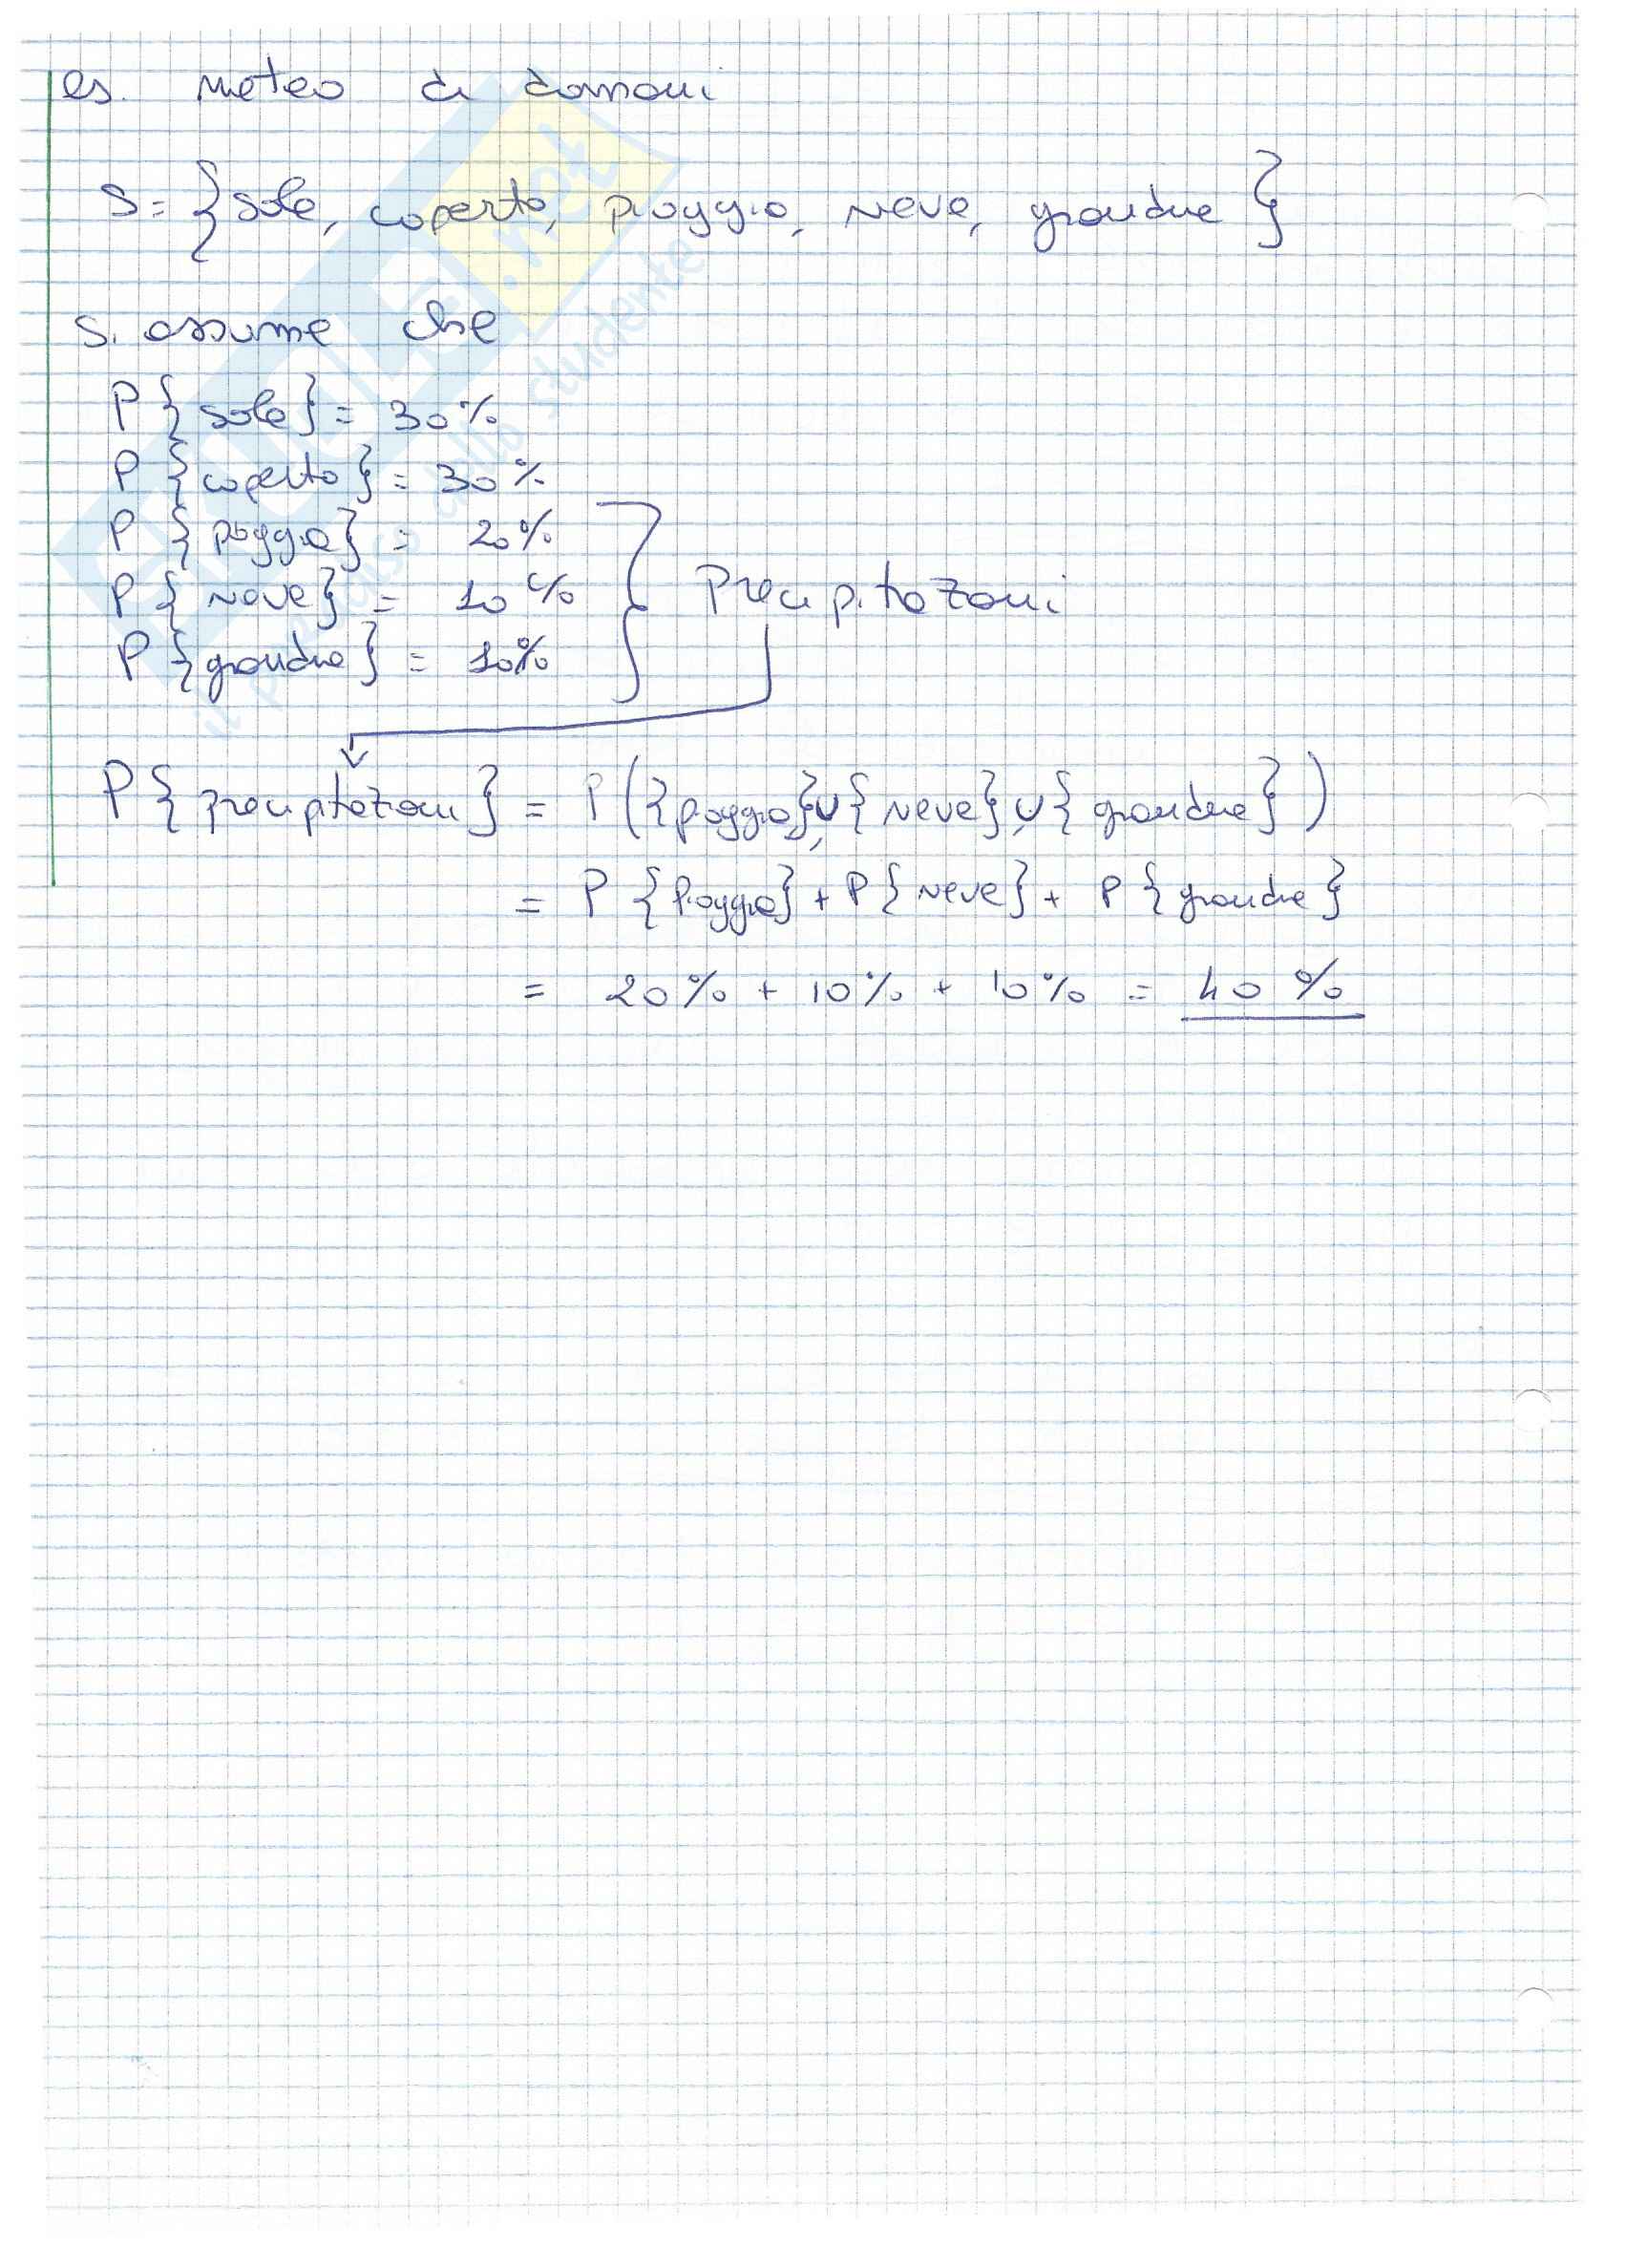 es. meteo di domani
S = {sole, coperto, pioggia, neve, grandine}
Si assume che
P {sole} = 30%
P {coperto} = 30%
P {pioggia} = 20%
P {neve} = 10%
P {grandine} = 10%
Precipitazioni
P{precipitazioni} = P({pioggia}∪{neve}∪{grandine})
= P {Pioggia} + P{neve} + P {grandine}
= 20% + 10% + 10% = 40%
.net
dallo studente